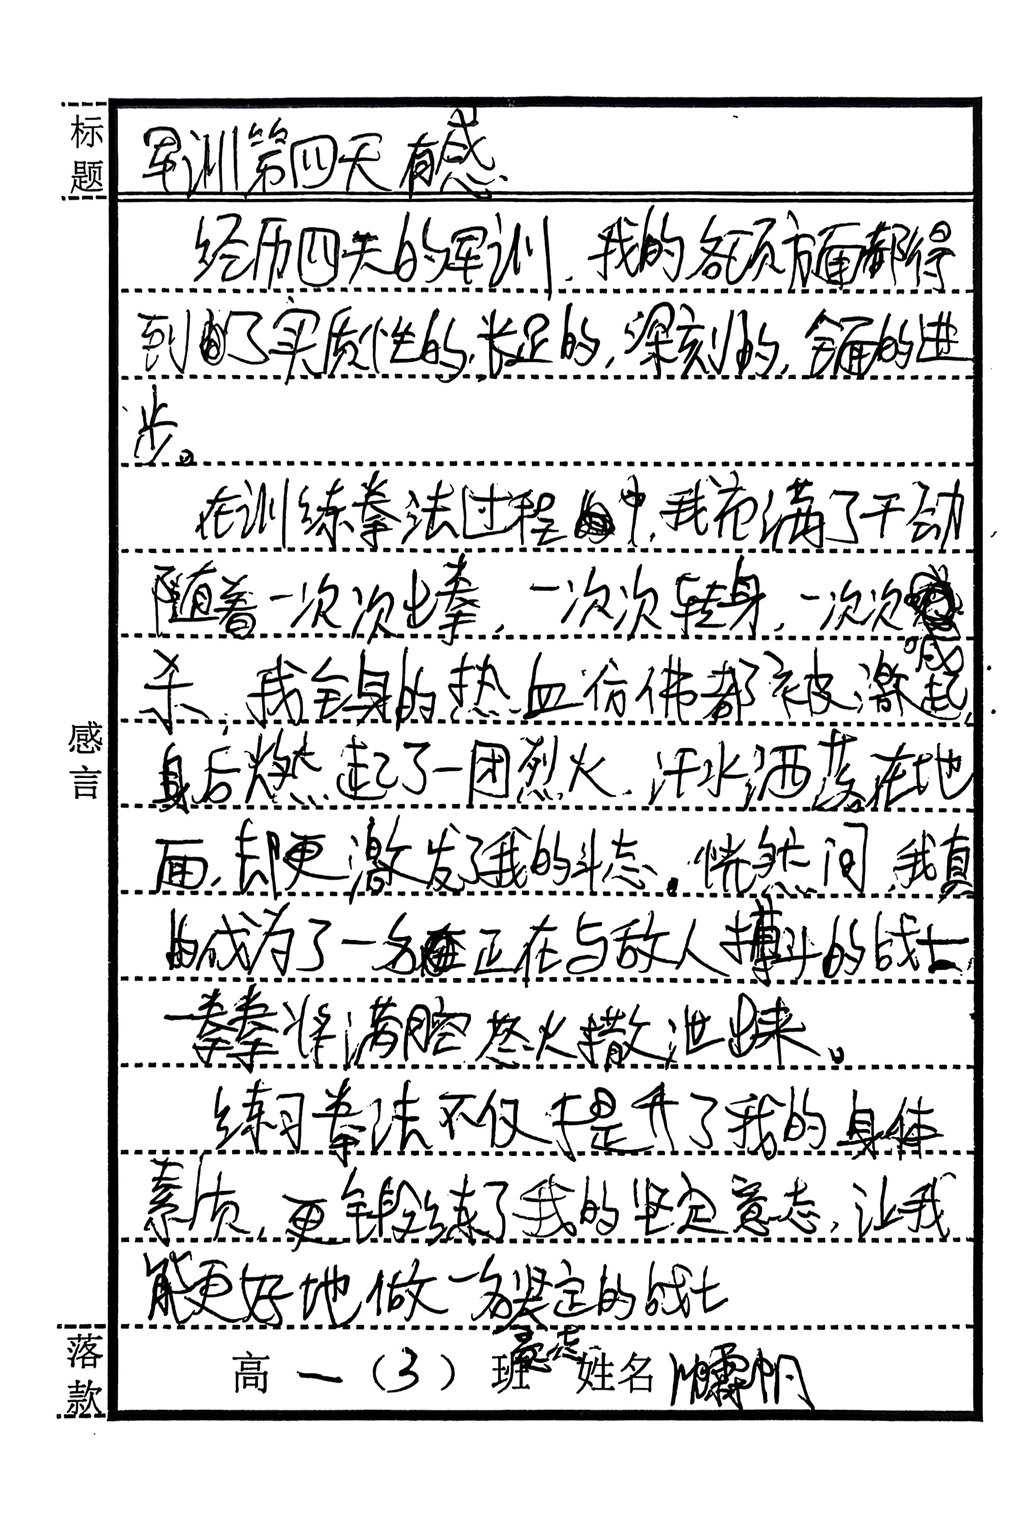 标题
军训第四天有感
经历四天的军训，我的各项方面都得
到了实质性的，长足的，深刻的，全面的进
步。
在训练拳法过程中，我充满了干劲
随着一次次出拳，一次次转身，一次次
喊
杀，我全身的热血仿佛都被激起，
感言
身后燃起了一团烈火，汗水洒落在地
面，却更激发了我的斗志。恍然间，我真
的成为了一名正在与敌人搏斗的战士
一拳拳将满腔怒火撒泄出来。
练习拳法不仅提升了我的身体
素质，更锻练了我的坚定意志，让我
能更好地做一名坚定的战士
意志
落款
高一（3）班 姓名